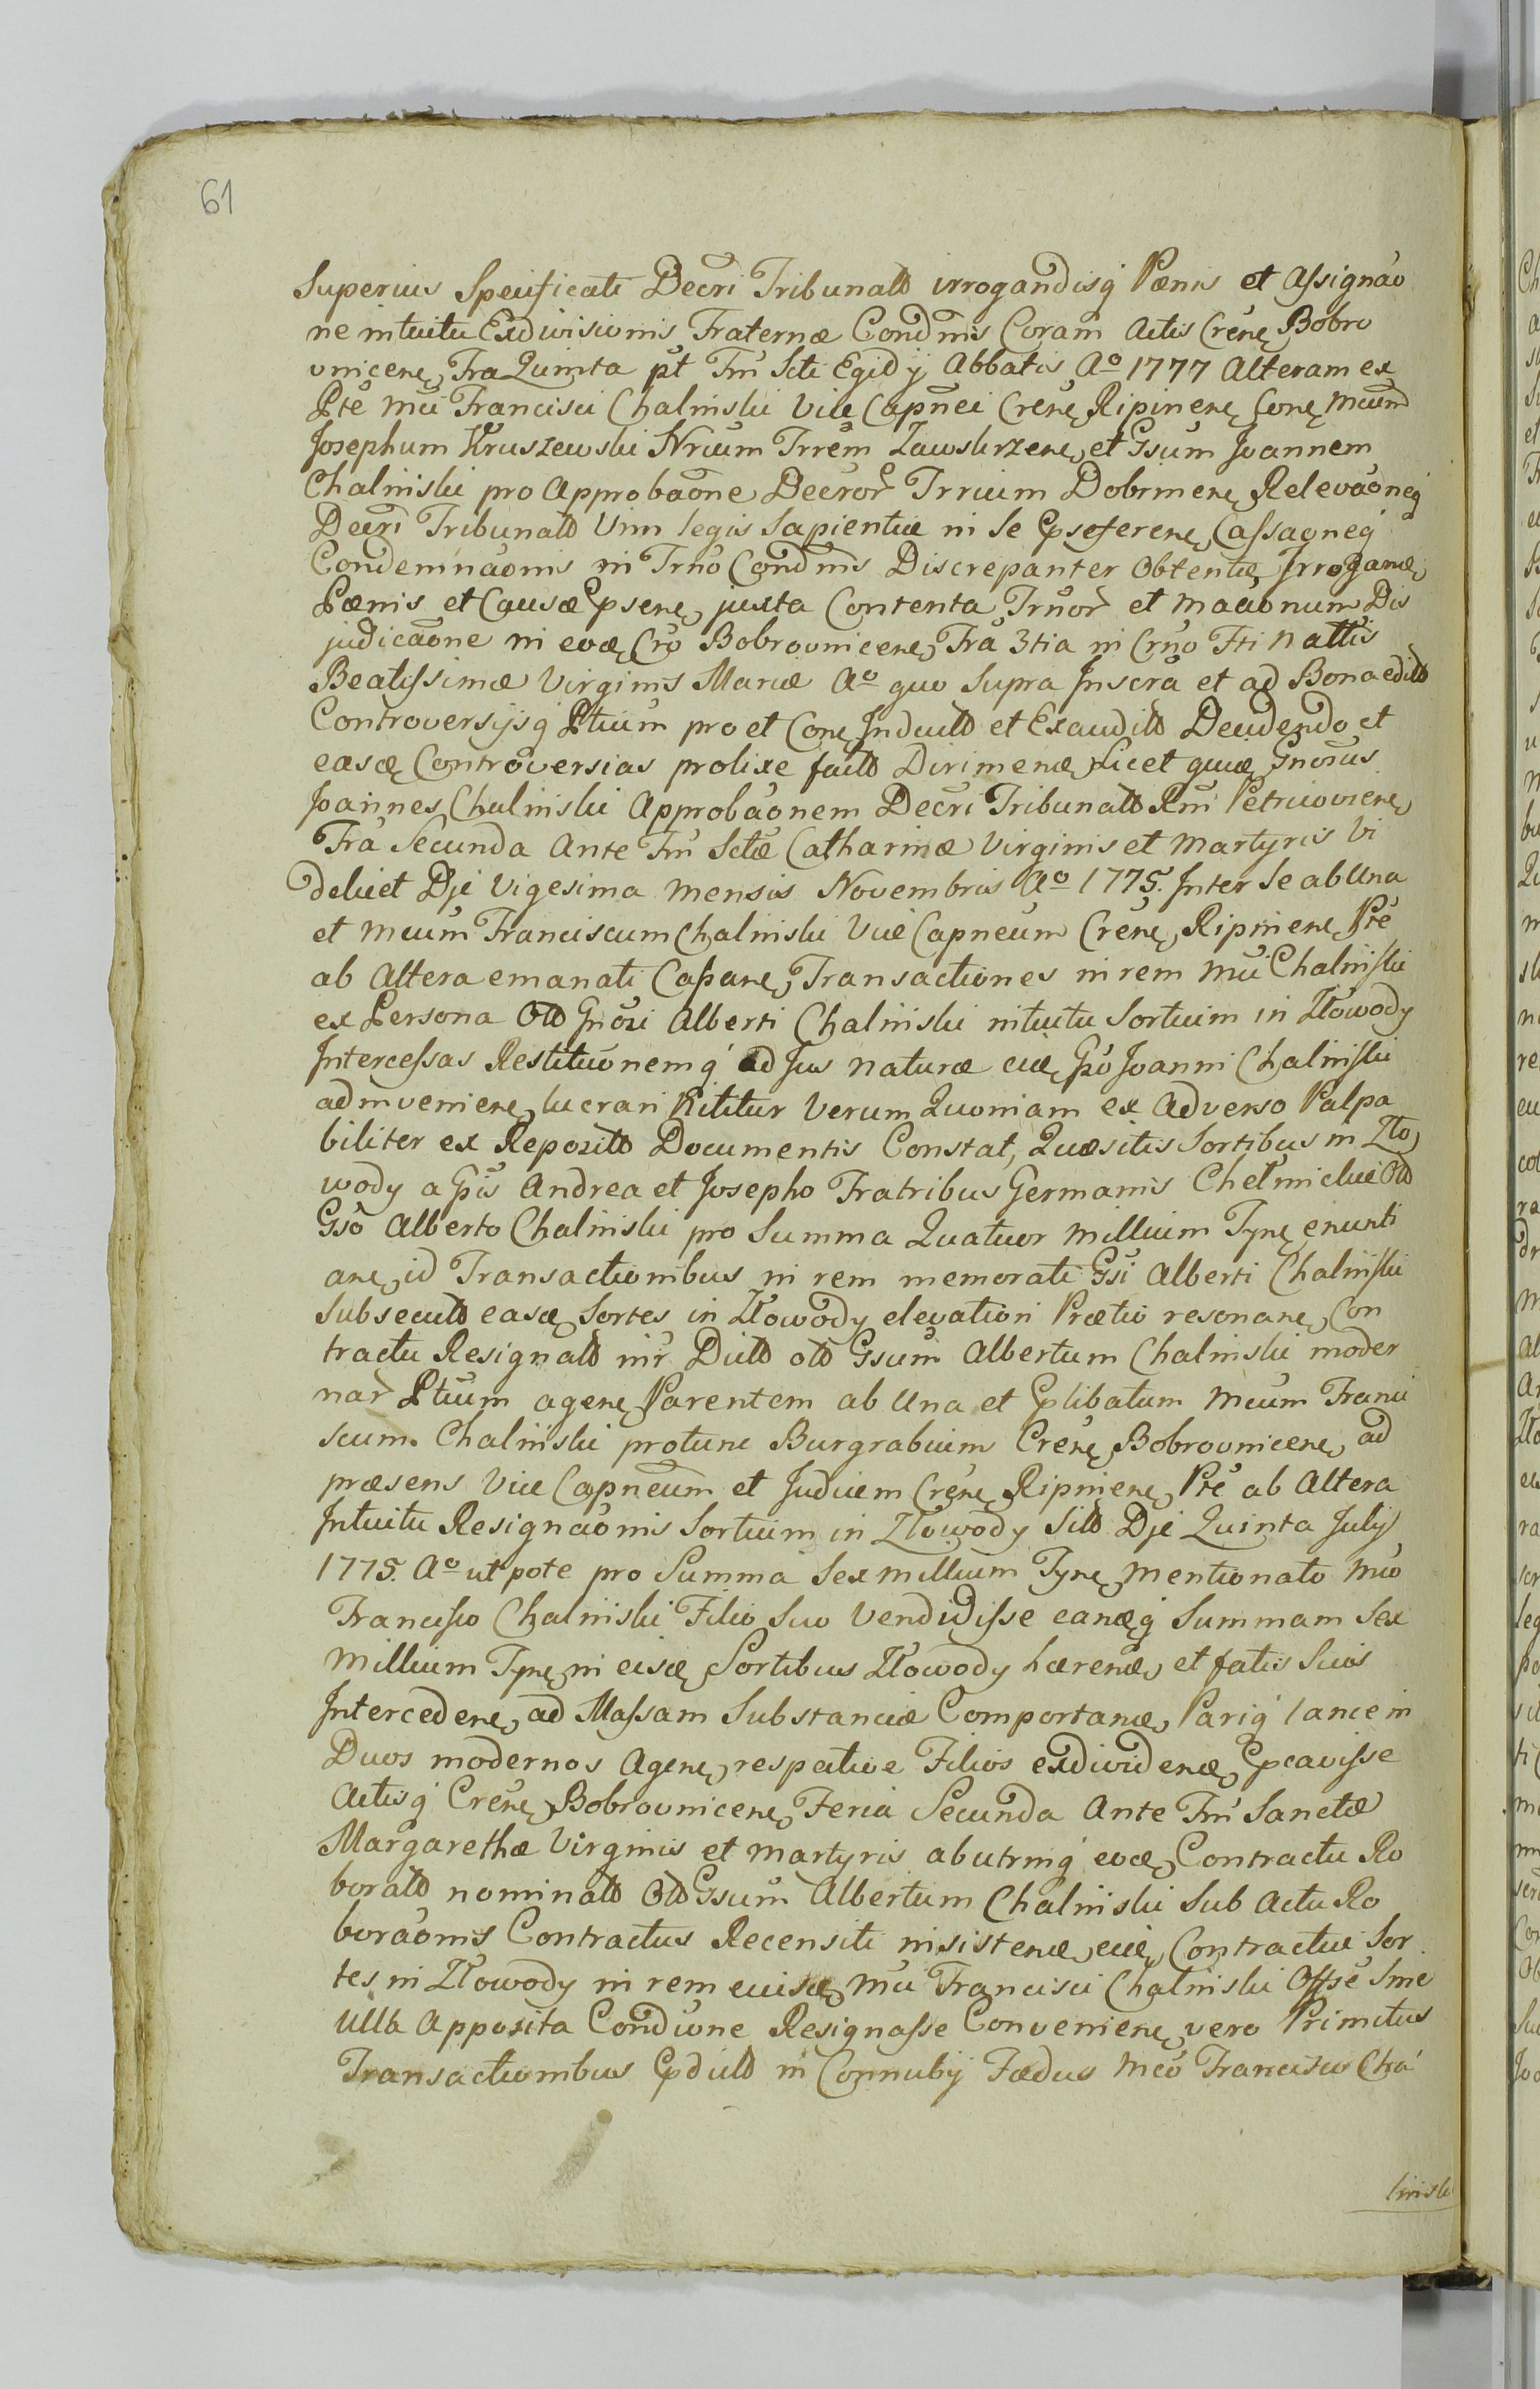 61
Superius Specificati Decri Tribunald irrogandisq Pænis et Assignao
ne intuitu Exdivisionis Fraternæ Condnis Coram Actis Crene Bobro
vnicene Fra Quinta pt Fm Scti Egidij Abbatis Ao 1777 Alteram ex
Pte Mci Francisci Chalinski Vice Capnei Crene Ripinene Cone Mcum
Josephum Kruszewski Nrium Trrem Zawskrzene et Gsum Joannem
Chalinski pro Approbaone Decror Trrium Dobrinene Relevaoneq
Decri Tribunald Vim legis Sapientiæ in Se Pseferene Cassaoneq
Condemnaonis in Trno Condnis Discrepanter Obtentæ Irroganæ
Pænis et Causæ Psene juxta Contenta Trnor et Maaonum Dis
judicaone in eoæ Cro Bobrovnicene Fra 3tia in Crno Fti Nattis
Beatissimæ Virginis Mariæ Ao quo Supra Inscra et ad Bona edild
Controversijsq Ptium pro et Cone Induild et Exaudild Decidendo et
easæ Controversias prolixe faild Dirimenæ Licet quiæ Gnosus
Joannes Chalinski Approbaonem Decri Tribunald Rni Petricoviene
Fra Secunda Ante Fm Sctæ Catharinæ Virginis et Martyris Vi
delicet Die Vigesima Mensis Novembris Ao 1775. Inter Se ab Una
et Mcum Franciscum Chalinski Vice Capneum Crene Ripinene Pte
ab Altera emanati Capane Transactiones in rem Mci Chalinski
ex Persona Old Gnosi Alberti Chalinski intuitu Sortium in Złowody
Intercessas Restituonemq ad Jus naturæ eiæ Gso Joanni Chalinski
adinveniene lucrari Nititur Verum Quoniam ex Adverso Palpa
biliter ex Reposild Documentis Constat, Quæsitis Sortibus in Zło
wody a Gsis Andrea et Josepho Fratribus Germanis Chełmickie Old
Gso Alberto Chalinski pro Summa Quatuor Millium Tyne enunti
ane id Transactionibus in rem memorati Gsi Alberti Chalinski
Subsecuild easæ Sortes in Złowody elevatiori Prætio resonane Con
tractu Resignald inr Dicld old Gsum Albertum Chalinski moder
nar Ptium agene Parentem ab Una et Plibatum Mcum Franci
scum Chalinski protunc Burgrabium Crene Bobrovnicene ad
præsens Vice Capneum et Judicem Crene Ripinene Pte ab Altera
Intuitu Resignaonis Sortium in Złowody Sild Die Quinta July
1775. Ao ut pote pro Summa Sex millium Tyne Mentionato Mco
Francisco Chalinski Filio Suo Vendidisse eanæq Summam Sex
Millium Tyne in eisæ Sortibus Złowody hærenæ et fatis Suis
Intercedene ad Massam Substanciæ Comportanæ Pariq lance in
Duos modernos Agene respective Filios exdividenæ Pcavisse
Actisq Crene Bobrovnicene Feria Secunda Ante Fm Sanctæ
Margarethæ Virginis et Martyris ab utrinq eoæ Contractu Ro
borald nominald Old Gsum Albertum Chalinski Sub Actu Ro
boraonis Contractus Recensiti insistenæ eiæ Contractui Sor
tes in Złowody in rem eiusæ Mci Francisci Chalinski Offse Sine
Ulla Apposita Condione Resignasse Conveniene vero Primitus
Transactionibus Pduld in Connubij Fædus Mco Francisco Cha
linski